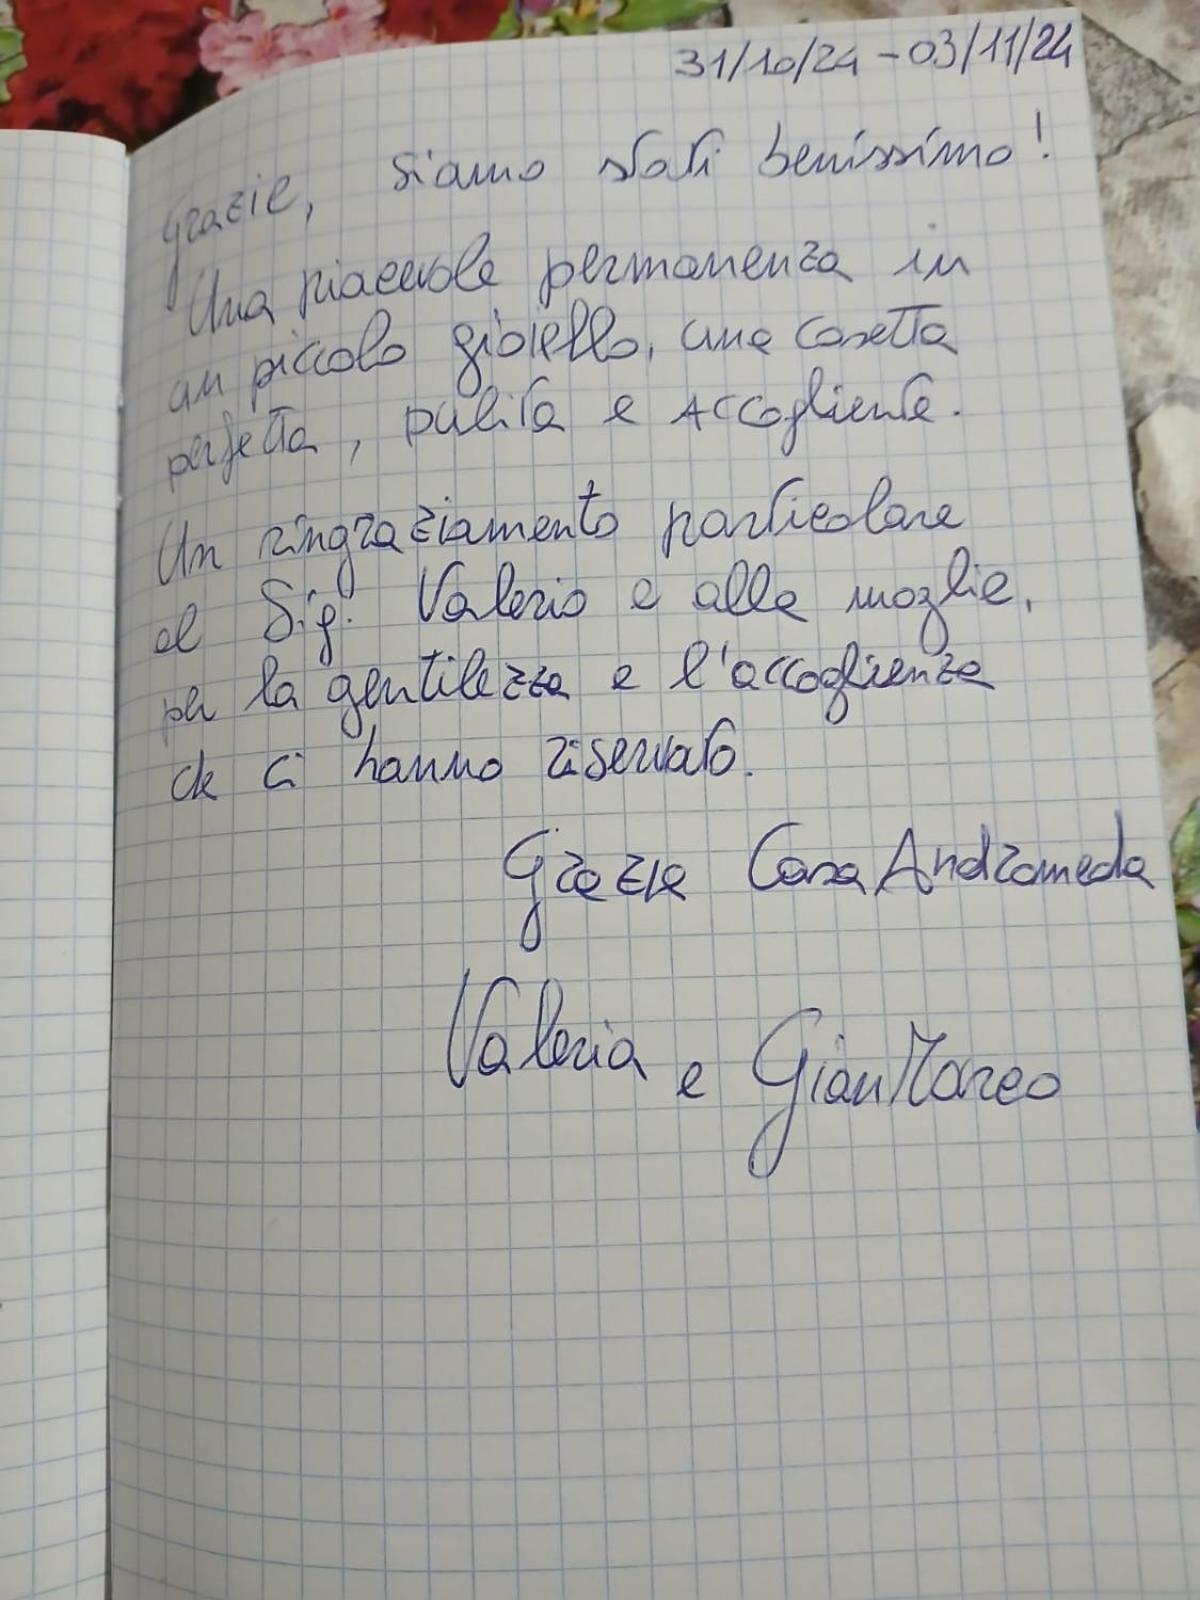 31/10/24 - 03/11/24
Grazie, Siamo stati benissimo!
Una piacevole permanenza in
un piccolo gioiello, una casetta
perfetta, pulita e accogliente.
Un ringraziamento particolare
al Sig. Valerio e alla moglie,
per la gentilezza e l'accoglienza
che ci hanno riservato.
Grazie Casa Andromeda
Valeria e GianMarco